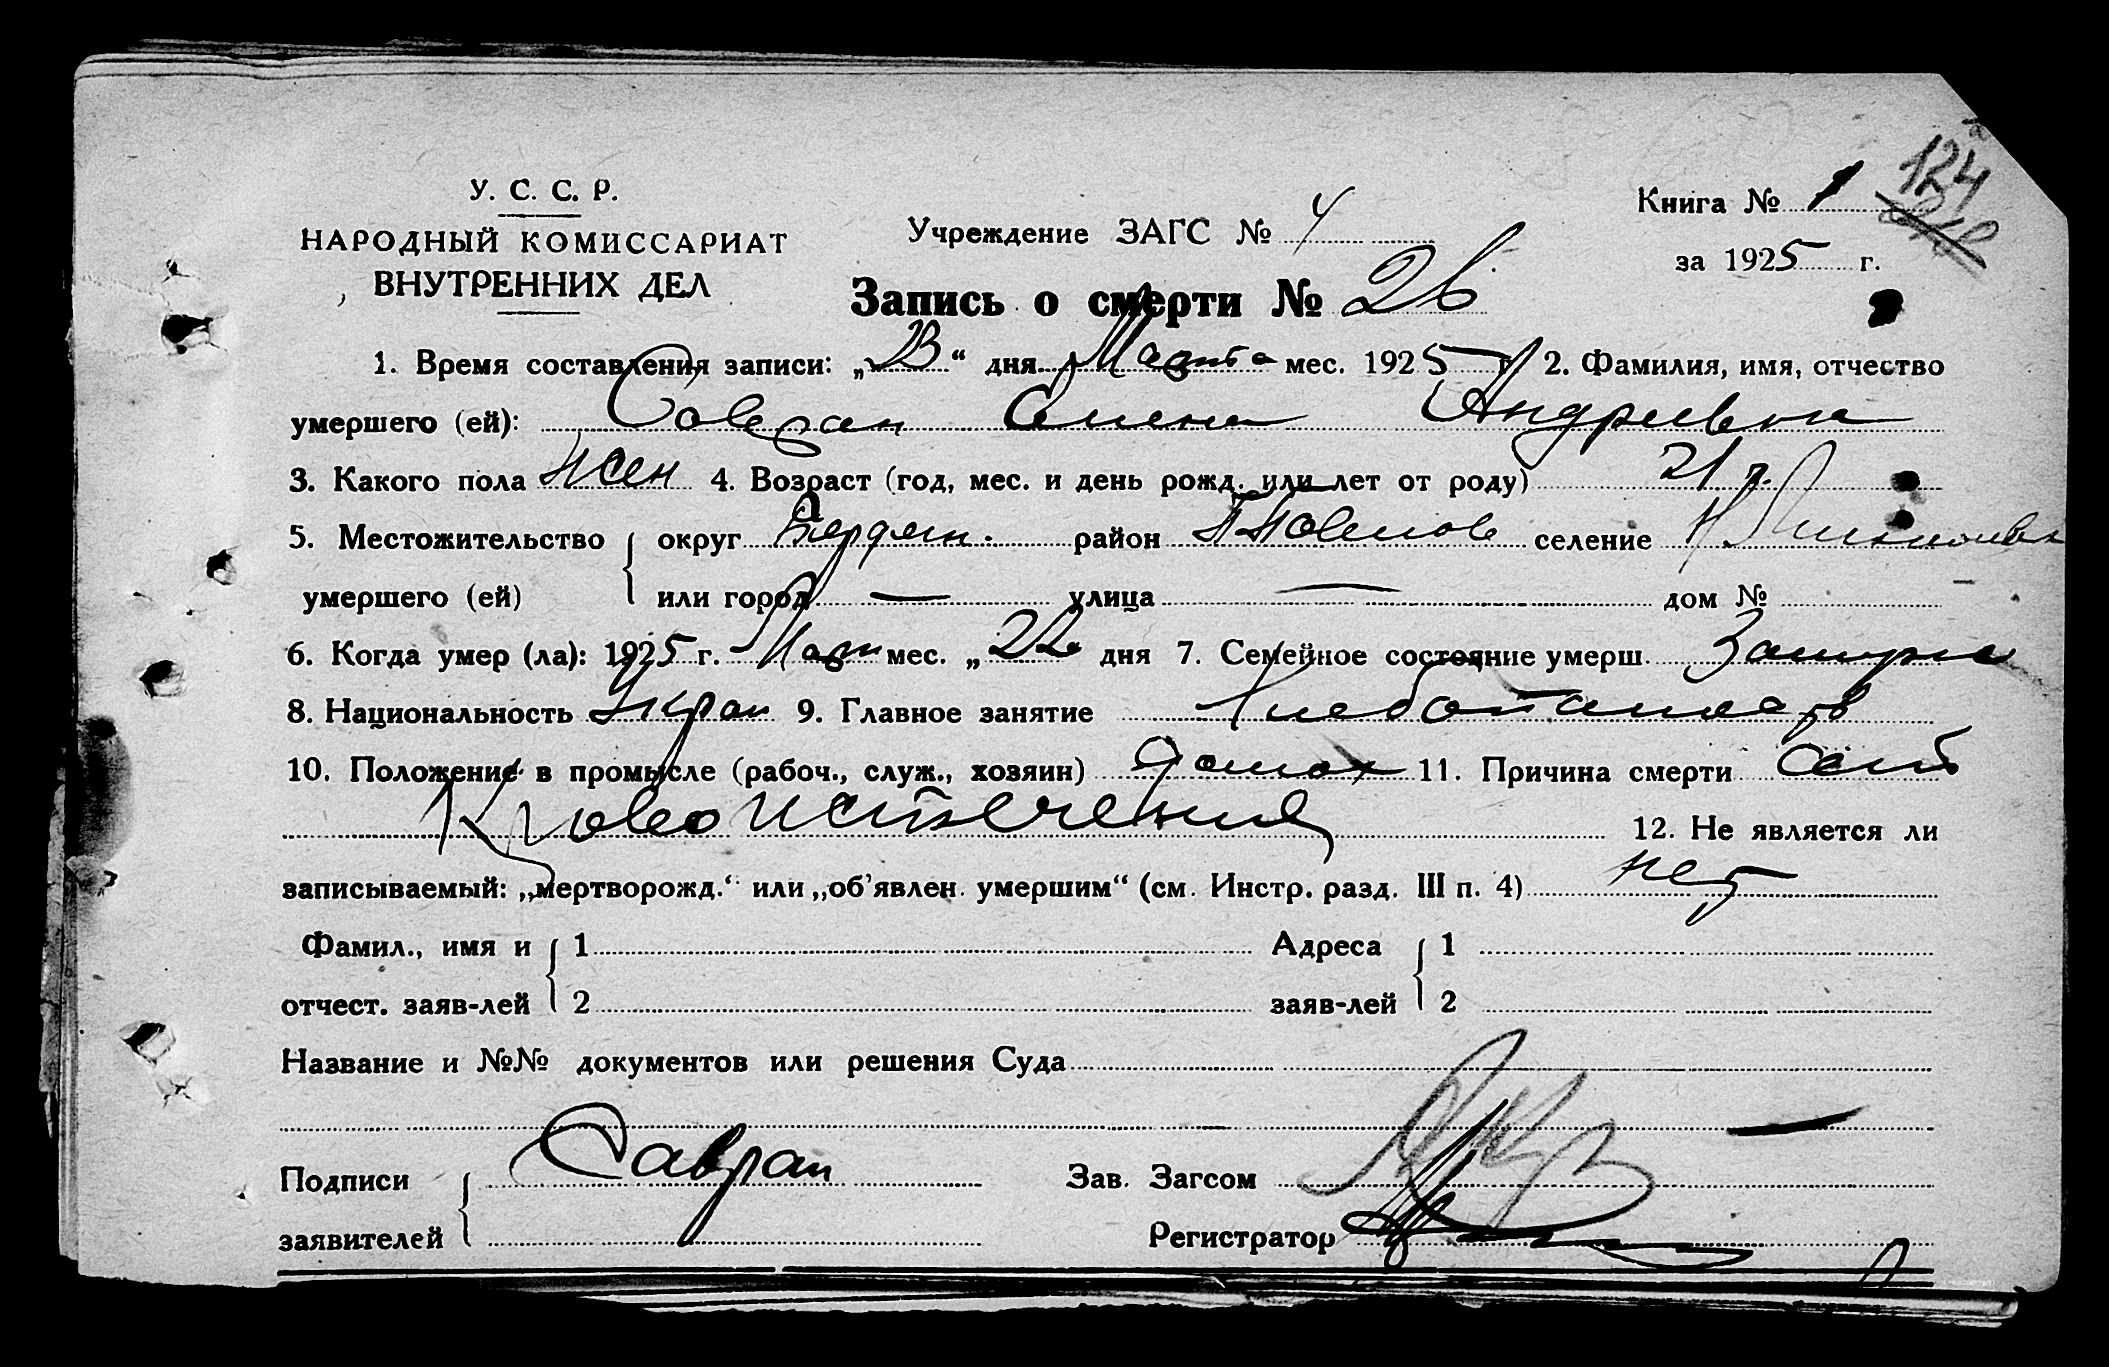 У. С. С. Р.
НАРОДНЫЙ КОМИССАРИАТ
ВНУТРЕННИХ ДЕЛ
Учреждение ЗАГС № 4
Книга № 1
124
за 1925 г.
Запись о смерти № 26
1. Время составления записи: „23“ дня Марта мес. 1925 г. 2. Фамилия, имя, отчество
умершего (ей): Савран Елена Андреевна
3. Какого пола жен 4. Возраст (год, мес. и день рожд. или лет от роду) 21 г.
5. Местожительство округ Бердян. район селение
умершего (ей) или город — улица — дом №
6. Когда умер (ла): 1925 г. Март мес. „22 дня 7. Семейное состояние умерш. Замужня
8. Национальность Украин 9. Главное занятие Хлебопашество
10. Положение в промысле (рабоч., служ., хозяин) домох 11. Причина смерти
Кровоистечение 12. Не является ли
записываемый: „мертворожд.“ или „об’явлен. умершим“ (см. Инстр. разд. III п. 4) нет
Фамил., имя и 1 Адреса 1
отчест. заяв-лей 2 заяв-лей 2
Название и №№ документов или решения Суда
—
Подписи Савран Зав. Загсом
заявителей Регистратор